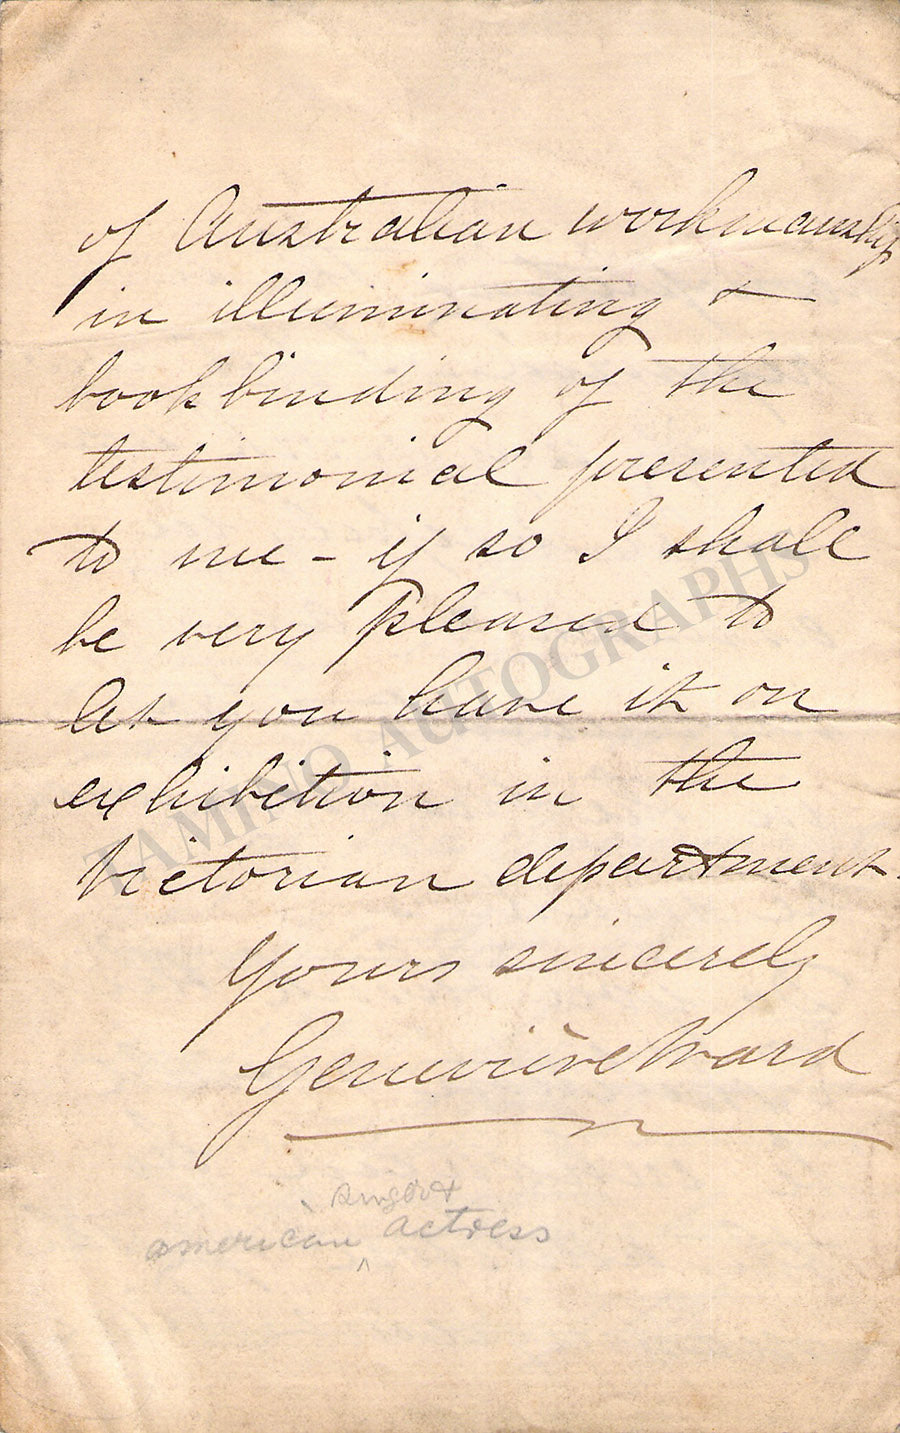 of Australian workmanship
in illuminating &
bookbinding of the
testimonial presented
to me – if so I shall
be very pleased to
let you have it on
exhibition in the
Victorian department.
Yours sincerely
Geneviève Ward
singer &
american ^ actress
TAMINO AUTOGRAPHS